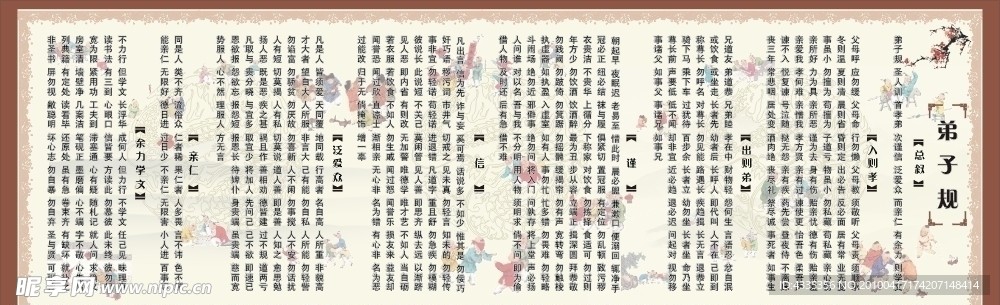 弟子规
【总叙】
弟子规 圣人训 首孝弟 次谨信 泛爱众 而亲仁 有余力 则学文
【入则孝】
父母呼 应勿缓 父母命 行勿懒 父母教 须敬听 父母责 须顺承
冬则温 夏则凊 晨则省 昏则定 出必告 反必面 居有常 业无变
事虽小 勿擅为 苟擅为 子道亏 物虽小 勿私藏 苟私藏 亲心伤
亲所好 力为具 亲所恶 谨为去 身有伤 贻亲忧 德有伤 贻亲羞
亲爱我 孝何难 亲憎我 孝方贤 亲有过 谏使更 怡吾色 柔吾声
谏不入 悦复谏 号泣随 挞无怨 亲有疾 药先尝 昼夜侍 不离床
丧三年 常悲咽 居处变 酒肉绝 丧尽礼 祭尽诚 事死者 如事生
【出则弟】
兄道友 弟道恭 兄弟睦 孝在中 财物轻 怨何生 言语忍 忿自泯
或饮食 或坐走 长者先 幼者后 长呼人 即代叫 人不在 己即到
称尊长 勿呼名 对尊长 勿见能 路遇长 疾趋揖 长无言 退恭立
骑下马 乘下车 过犹待 百步余 长者立 幼勿坐 长者坐 命乃坐
尊长前 声要低 低不闻 却非宜 进必趋 退必迟 问起对 视勿移
事诸父 如事父 事诸兄 如事兄
【谨】
朝起早 夜眠迟 老易至 惜此时 晨必盥 兼漱口 便溺回 辄净手
冠必正 纽必结 袜与履 俱紧切 置冠服 有定位 勿乱顿 致污秽
衣贵洁 不贵华 上循分 下称家 对饮食 勿拣择 食适可 勿过则
年方少 勿饮酒 饮酒醉 最为丑 步从容 立端正 揖深圆 拜恭敬
勿践阈 勿跛倚 勿箕踞 勿摇髀 缓揭帘 勿有声 宽转弯 勿触棱
执虚器 如执盈 入虚室 如有人 事勿忙 忙多错 勿畏难 勿轻略
斗闹场 绝勿近 邪僻事 绝勿问 将入门 问孰存 将上堂 声必扬
人问谁 对以名 吾与我 不分明 用人物 须明求 倘不问 即为偷
借人物 及时还 后有急 借不难
【信】
凡出言 信为先 诈与妄 奚可焉 话说多 不如少 惟其是 勿佞巧
奸巧语 秽污词 市井气 切戒之 见未真 勿轻言 知未的 勿轻传
事非宜 勿轻诺 苟轻诺 进退错 凡道字 重且舒 勿急疾 勿模糊
彼说长 此说短 不关己 莫闲管 见人善 即思齐 纵去远 以渐跻
见人恶 即内省 有则改 无加警 唯德学 唯才艺 不如人 当自砺
若衣服 若饮食 不如人 勿生戚 闻过怒 闻誉乐 损友来 益友却
闻誉恐 闻过欣 直谅士 渐相亲 无心非 名为错 有心非 名为恶
过能改 归于无 倘掩饰 增一辜
【泛爱众】
凡是人 皆须爱 天同覆 地同载 行高者 名自高 人所重 非貌高
才大者 望自大 人所服 非言大 己有能 勿自私 人所能 勿轻訾
勿谄富 勿骄贫 勿厌故 勿喜新 人不闲 勿事搅 人不安 勿话扰
人有短 切莫揭 人有私 切莫说 道人善 即是善 人知之 愈思勉
扬人恶 既是恶 疾之甚 祸且作 善相劝 德皆建 过不规 道两亏
凡取与 贵分晓 与宜多 取宜少 将加人 先问己 己不欲 即速已
恩欲报 怨欲忘 报怨短 报恩长 待婢仆 身贵端 虽贵端 慈而宽
势服人 心不然 理服人 方无言
【亲仁】
同是人 类不齐 流俗众 仁者稀 果仁者 人多畏 言不讳 色不媚
能亲仁 无限好 德日进 过日少 不亲仁 无限害 小人进 百事坏
【余力学文】
不力行 但学文 长浮华 成何人 但力行 不学文 任己见 昧理真
读书法 有三到 心眼口 信皆要 方读此 勿慕彼 此未终 彼勿起
宽为限 紧用功 工夫到 滞塞通 心有疑 随札记 就人问 求确义
房室清 墙壁净 几案洁 笔砚正 墨磨偏 心不端 字不敬 心先病
列典籍 有定处 读看毕 还原处 虽有急 卷束齐 有缺坏 就补之
非圣书 屏勿视 蔽聪明 坏心志 勿自暴 勿自弃 圣与贤 可驯致
昵享网 www.nipic.cn
ID:4335356 NO:20100417174207148414